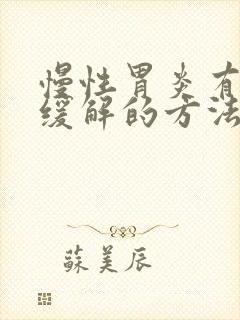 慢性胃炎有
缓解的方法
蘇美辰